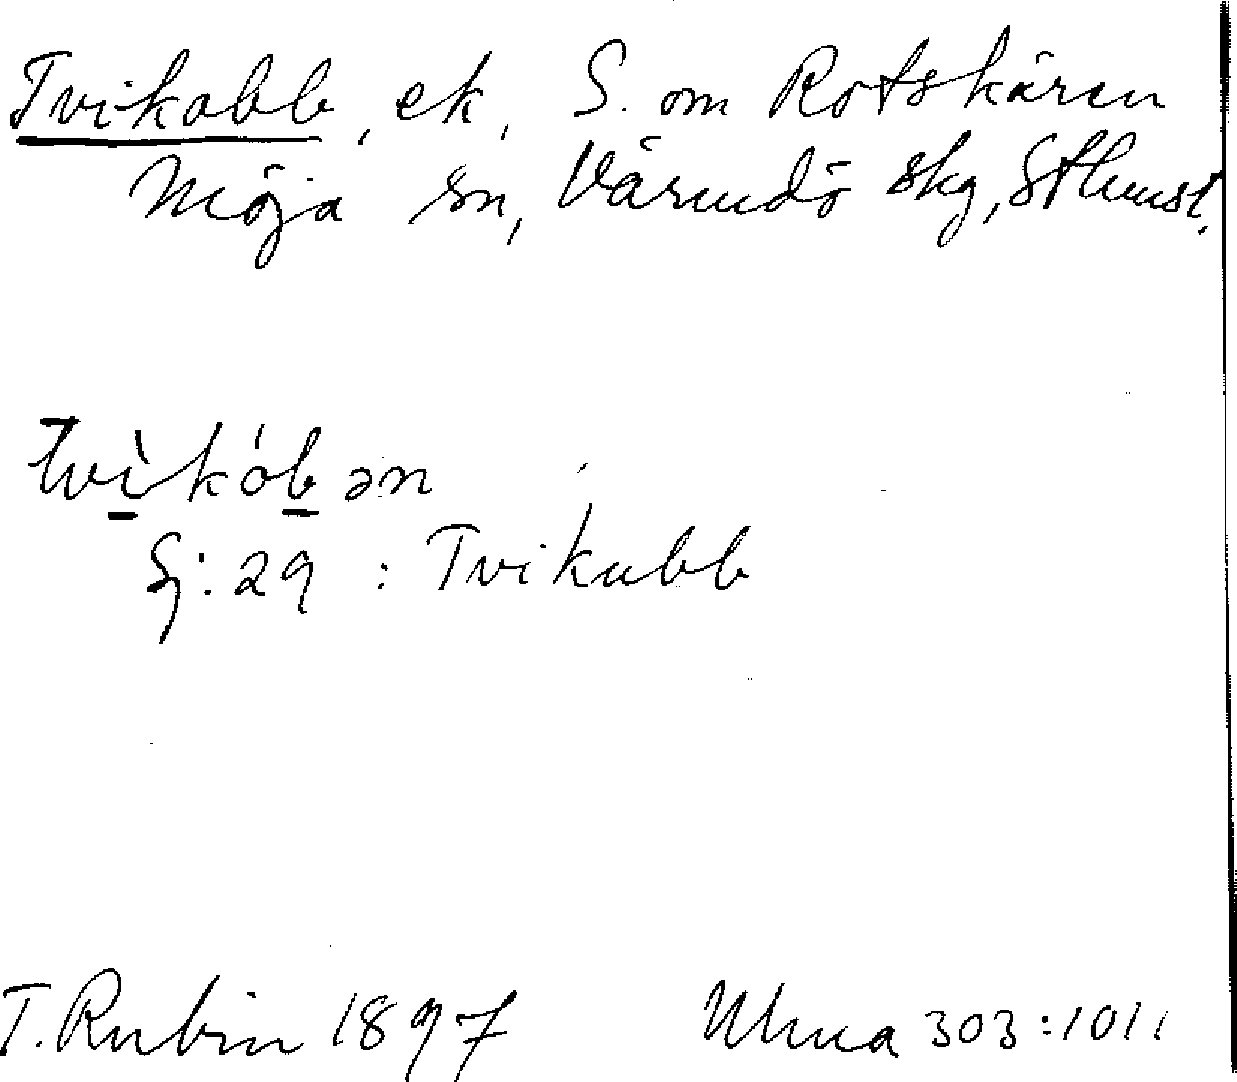 Tvikobb, ek, S. om Rotskären
Möja sn, Värmdö skg, Sthmsl.
tvìkóbən
Sj: 29 : Tvikubb
T. Rubin 1897 Uhua 303:1011